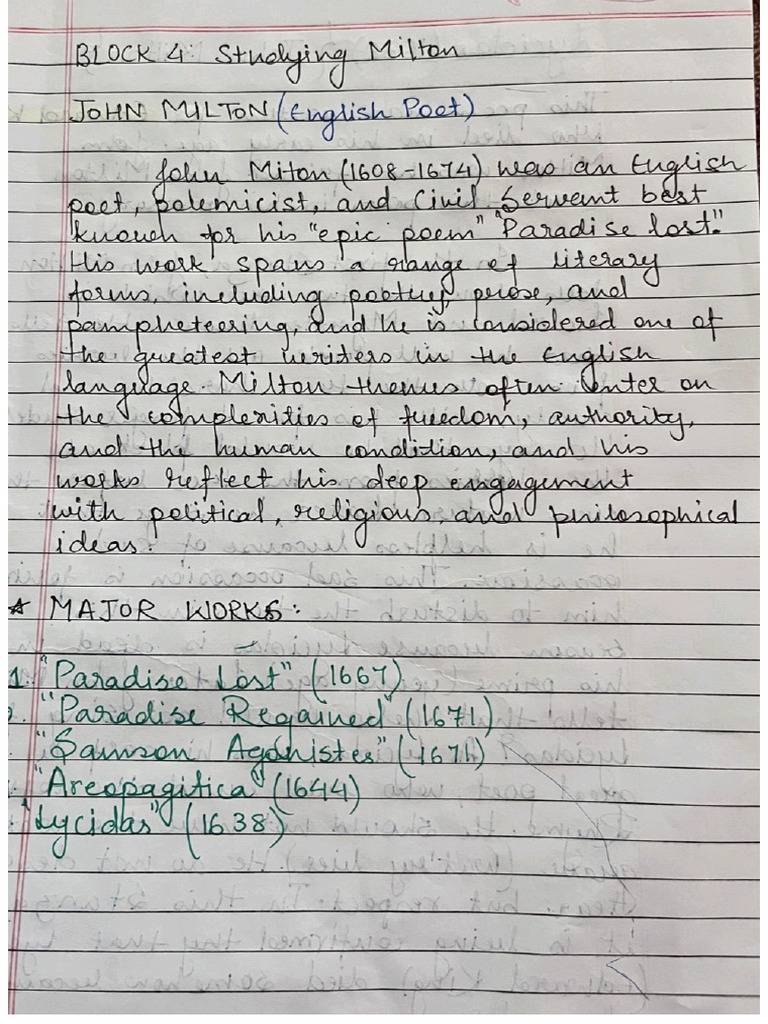 BLOCK 4: Studying Milton
JOHN MILTON (English Poet)
John Miton (1608-1674) was an English
poet, polemicist, and Civil Servent best
known for his "epic poem" "Paradise lost".
His work spans a range of literary
forms, including poetry, prose, and
pampheteering, and he is considered one of
the greatest writers in the English
language. Milton themes often center on
the complexities of freedom, authority,
and the human condition, and his
works reflect his deep engagement
with political, religious, and philosophical
ideas.
* MAJOR WORKS:
1. "Paradise Lost" (1667)
"Paradise Regained" (1671)
"Samson Agonistes" (1671)
"Areopagitica" (1644)
"Lycidas" (1638)